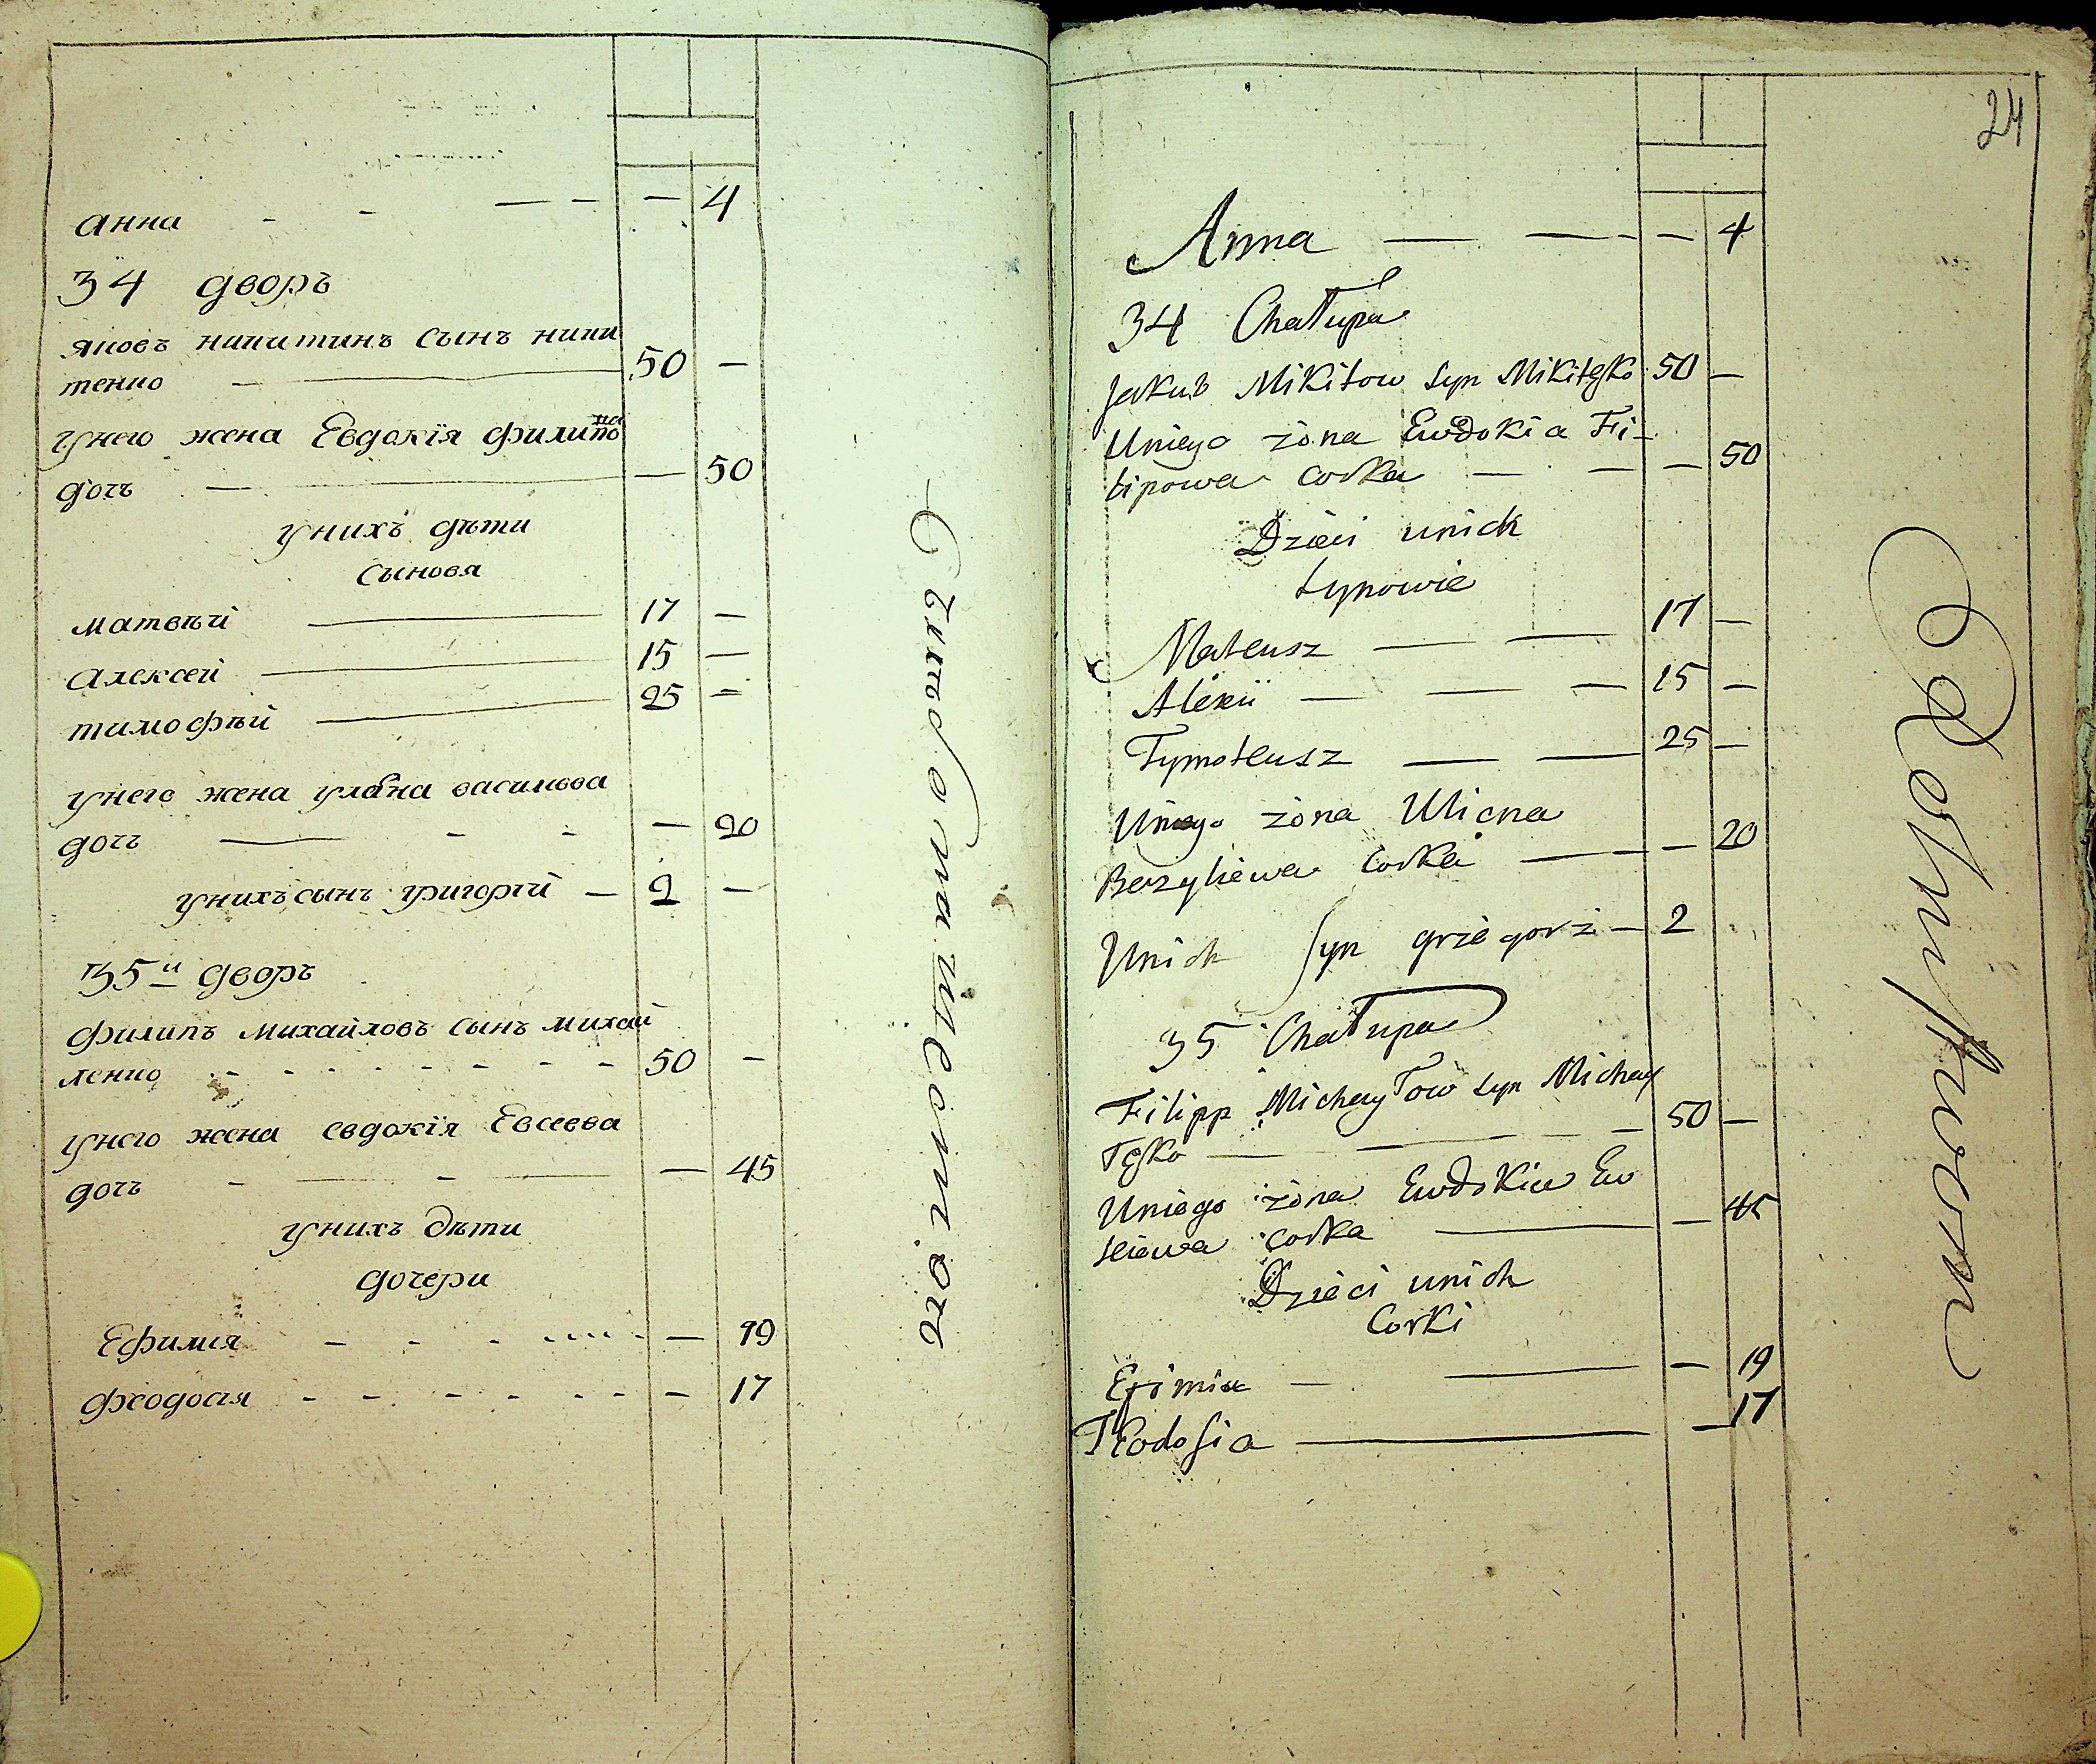 анна - - — - — 4
34 дворъ
яковъ никитинъ сынъ ники
тенко — 50 —
унего жена Евдокїя филипо
дочь — — 50
унихъ дѣти
сыновя
матвѣй — 17 —
алексей — 15 —
тимофѣй — 25 —
унего жена уляна василева
дочь — - - — 20
унихъ сынъ григорѣй — 2 —
35й дворъ
филипъ михайловъ сынъ михай
ленко - - - - - - - 50 —
унего жена евдокїя Евсеева
дочь - — - — — 45
унихъ дѣти
дочери
Ефимія - - - - — 19
феодосія - - - - - - — 17
24
Anna — — - — 4
34 Chałupa
Jakub Mikitow syn Mikitęko 50 —
Uniego żona Ewdokia Fi-
lipowa corka — — — 50
Dzieci unich
synowie
Mateusz — — 17 —
Alexii — — — 15 —
Tymoteusz — — 25 —
Uniego żona Ulicna
Bazyliewa corka — — 20
Unich syn grzegorz — 2
35 Chałupa
Filipp Michayłow syn Michay
łęko — — — 50 —
Uniego żona Ewdokia Ew
seiewa corka — — 45
Dzieci unich
Corki
Efimia — — — 19
Teodosia — — 17